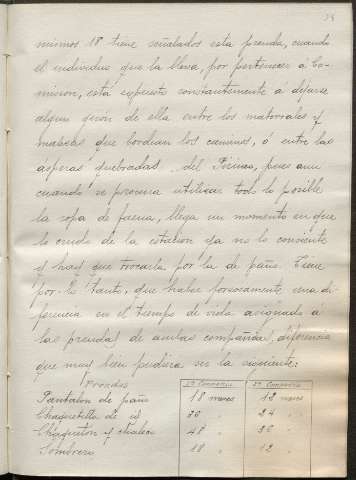 mismos 18 tiene señalados esta prenda, cuando
el individuo que la lleva, por pertenecer á Co-
mision, está expuesto constantemente á dejarse
algun giron de ella entre los matorrales y
malezas que bordean los caminos, ó entre las
ásperas quebradas del Pirineo, pues aun
cuando se procura utilizar todo lo posible
la ropa de faena, llega un momento en que
lo crudo de la estacion ya no lo consiente
y hay que trocarla por la de paño. Tiene
por lo tanto, que haber forzosamente una di-
ferencia en el tiempo de vida asignado á
las prendas de ambas compañías, diferencia
que muy bien pudiera ser la siguiente:
Prendas 1ª Compañia 2ª Compañia
Pantalon de paño 18 meses 12 meses
Chaquetilla de id 24 "
Chaqueton y chaleco "
Sombrero 18 " 12 "